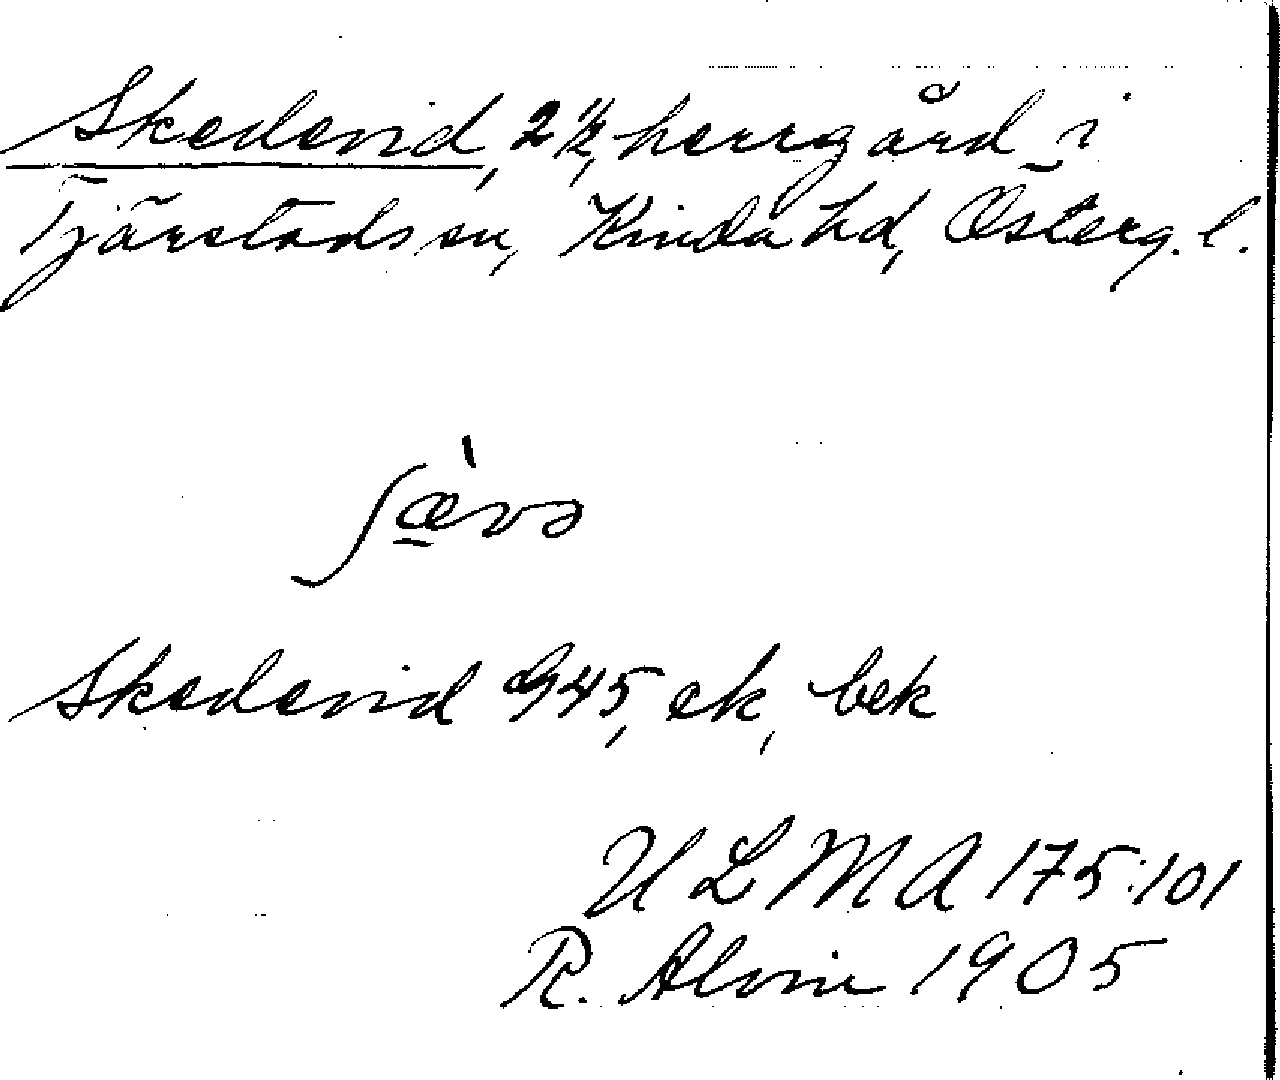 Skedevid, 2 ½, herrgård i
Tjärstads sn, Kinda hd, Österg. l.
ʃæ̠̀və
Skedevid 945, ek, bek
ULMA 175:101
R. Alvin 1905